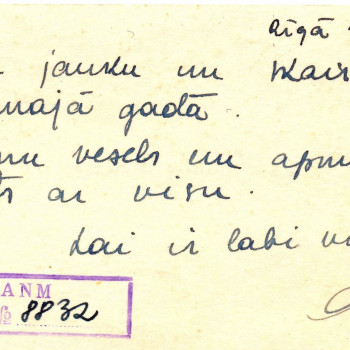 Rīgā
jauku un skai
najā gadā.
nu vesels un apmi
ts ar visu.
Lai ir labi vi
ANM
№ 8832